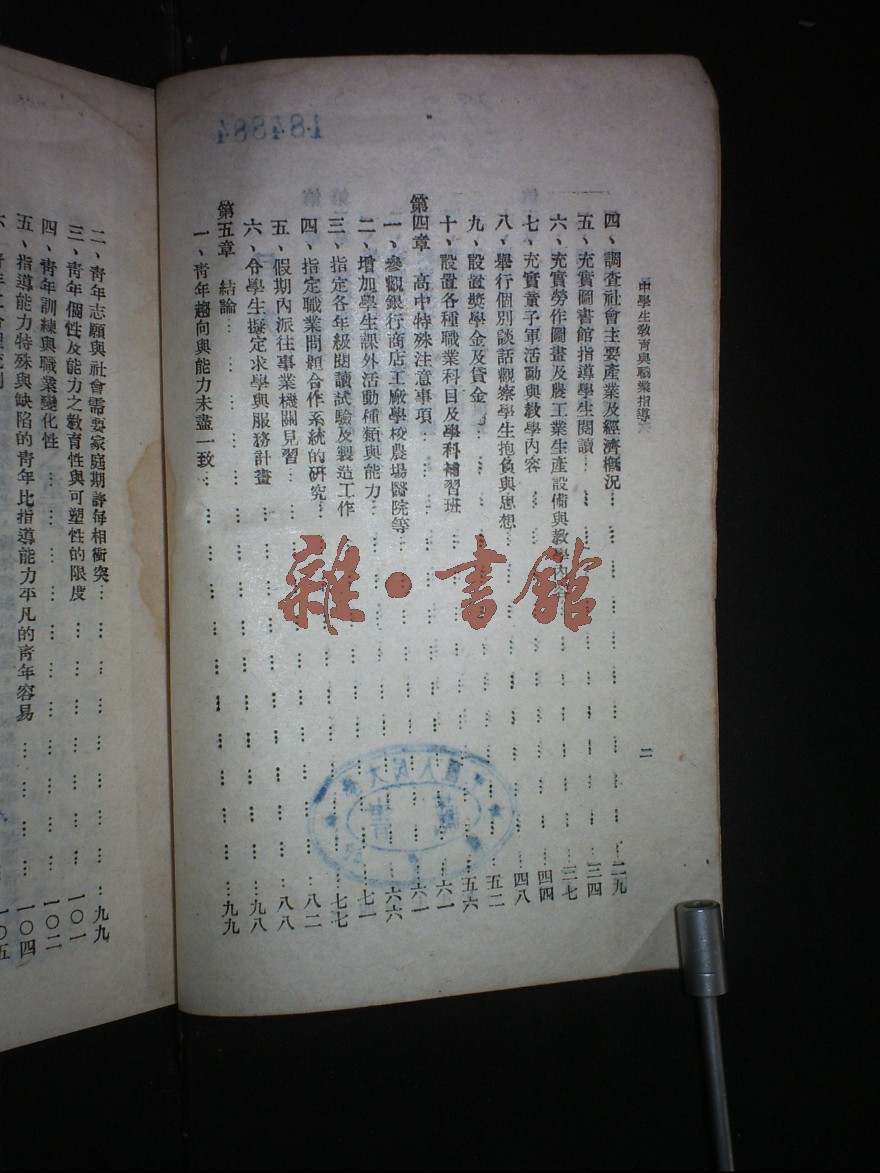 184384
中學生教育與職業指導
二
四、調查社會主要產業及經濟概況……二九
五、充實圖書館指導學生閱讀……三四
六、充實勞作圖畫及農工業生產設備與教學內容……三七
七、充實童子軍活動與教學內容……四四
八、舉行個別談話觀察學生抱負與思想……四八
九、設置獎學金及貸金……五二
十、設置各種職業科目及學科補習班……五六
第四章 高中特殊注意事項……六一
一、參觀銀行商店工廠學校農場醫院等……六一
二、增加學生課外活動種類與能力……六六
三、指定各年級閱讀試驗及製造工作……七一
四、指定職業問題合作系統的研究……七七
五、假期內派往事業機關見習……八二
六、令學生擬定求學與服務計畫……八八
第五章 結論……九八
一、青年趨向與能力未盡一致……九九
二、青年志願與社會需要家庭期許每相衝突……九九
三、青年個性及能力之教育性與可塑性的限度……一〇一
四、青年訓練與職業變化性……一〇二
五、指導能力特殊與缺陷的青年比指導能力平凡的青年容易……一〇四
一〇五
雜·書館